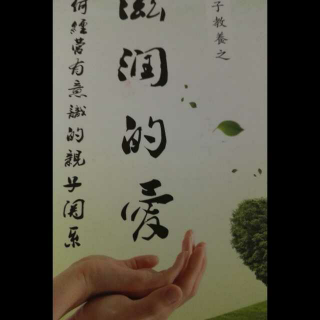 子教養之
滋润的愛
何經营有意識的親子関系